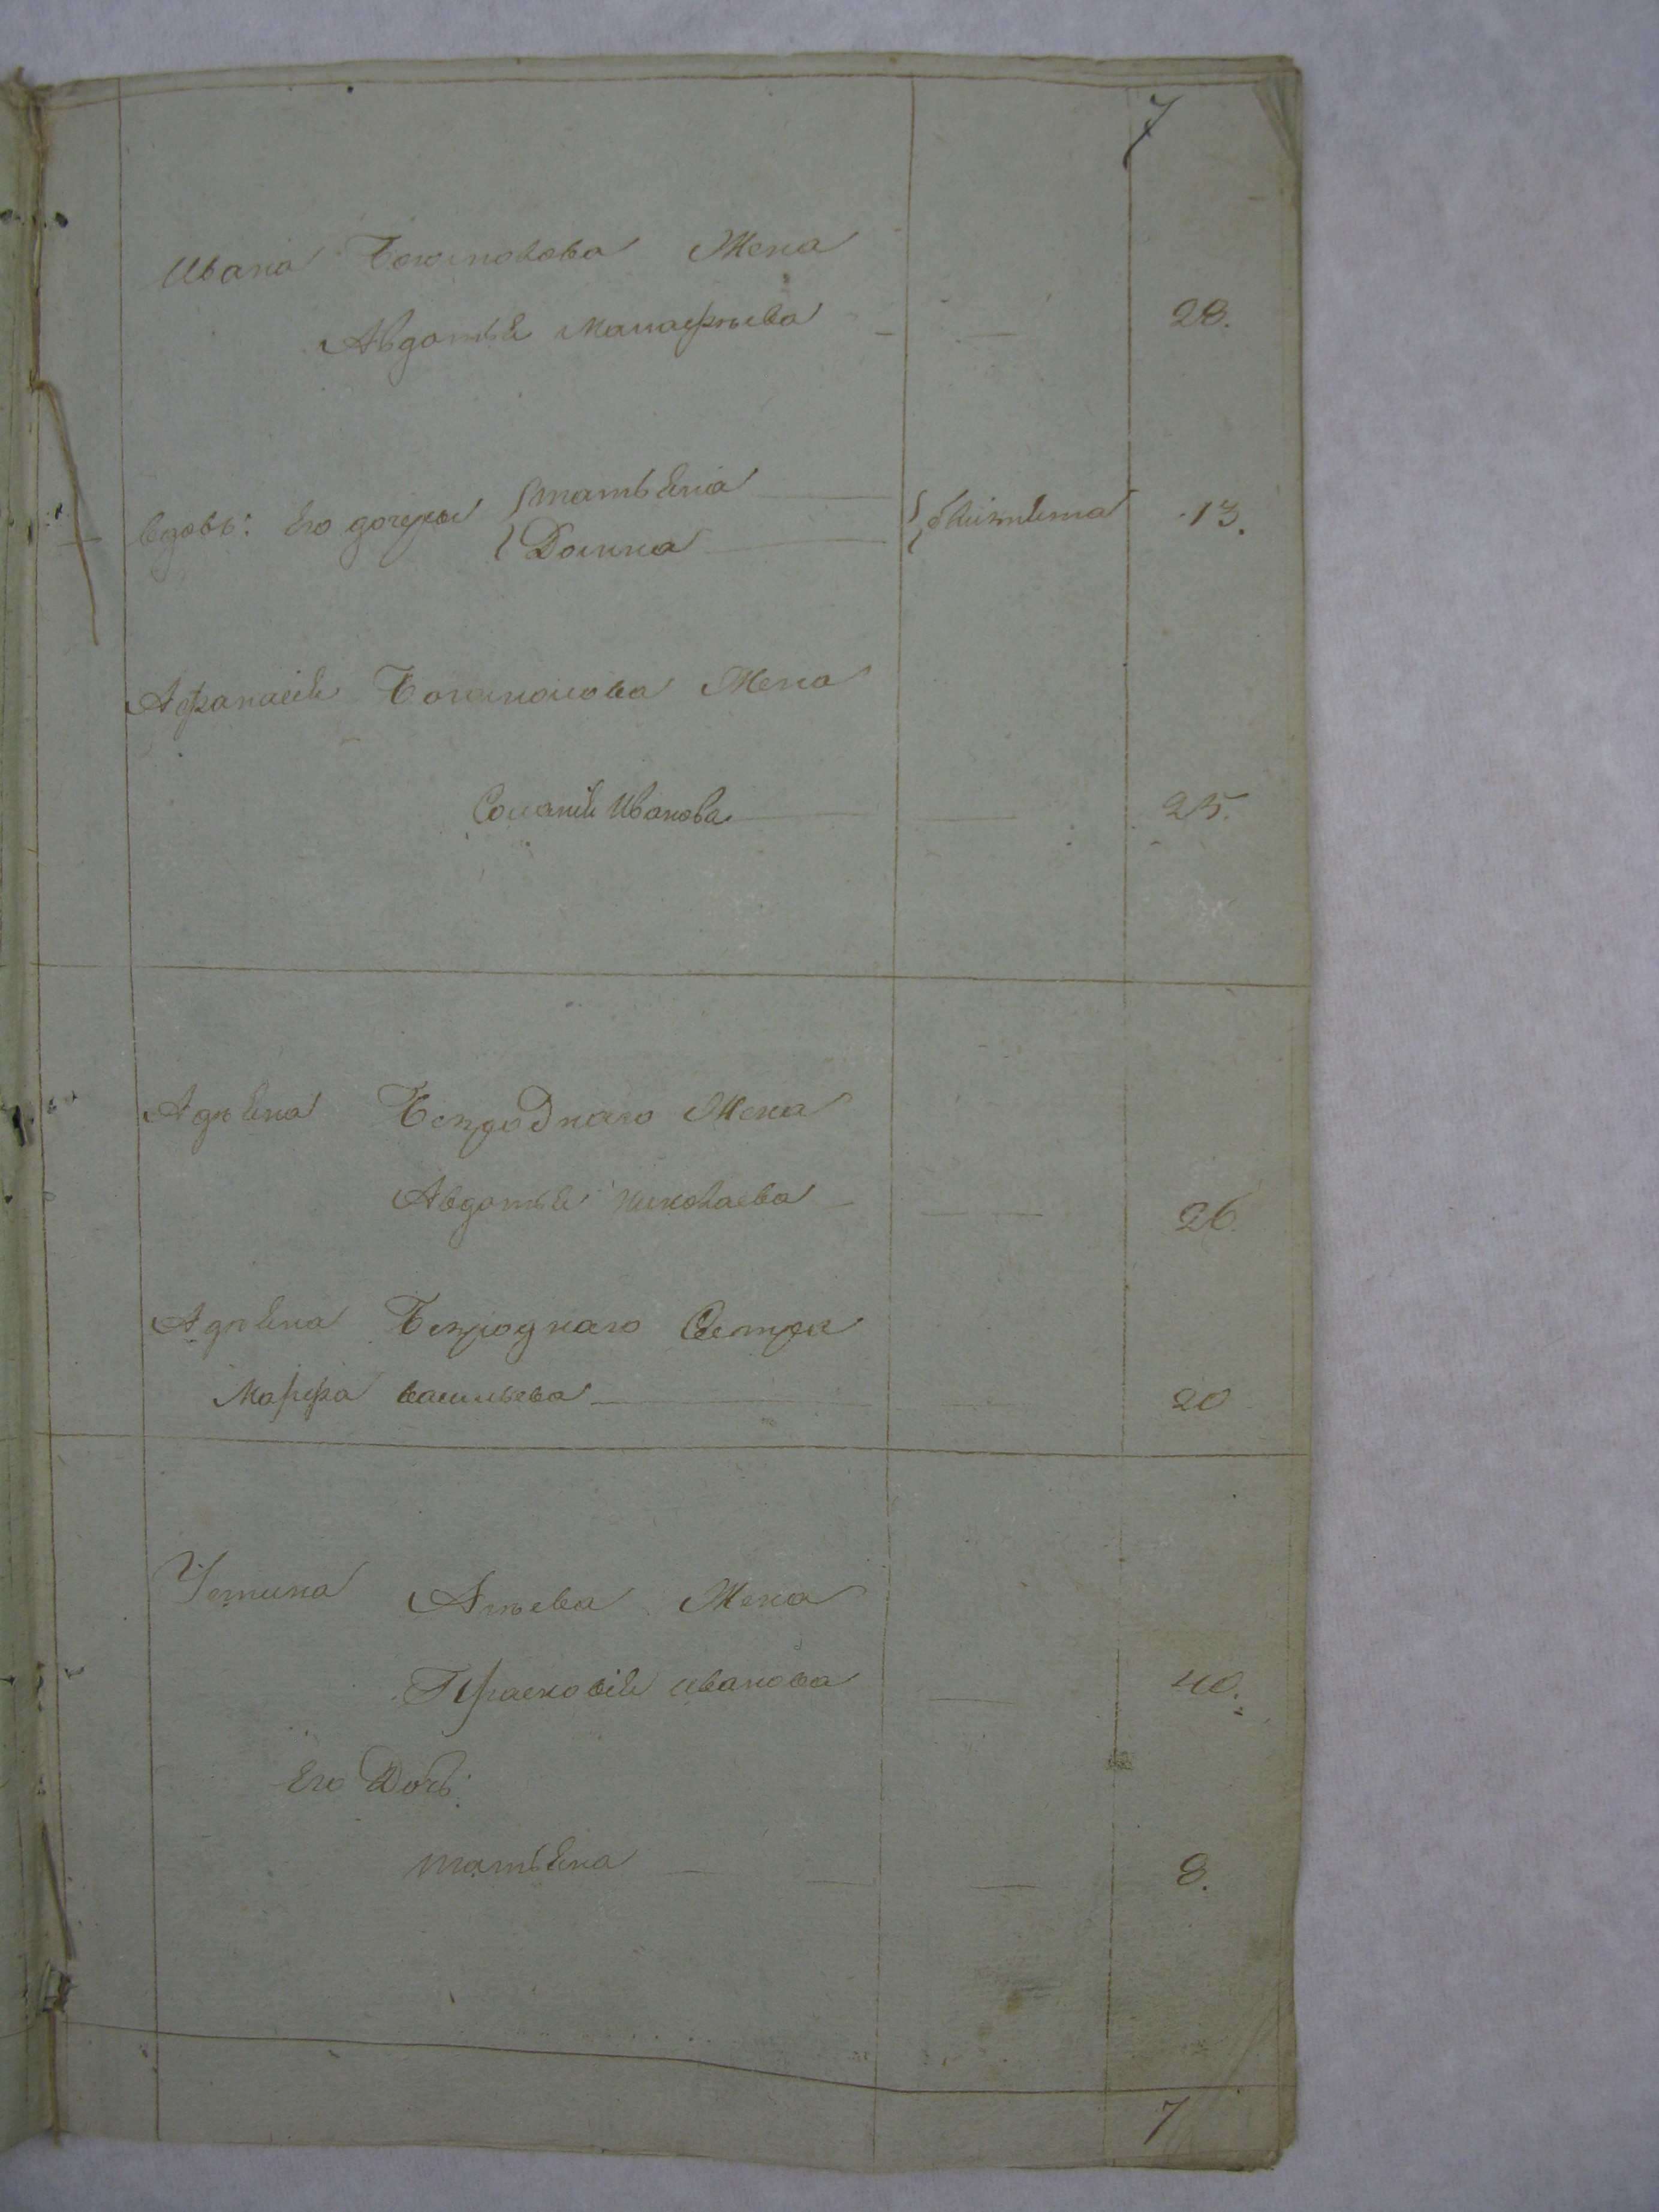 7
Ивана Жена
Авдотья 28.
вдовъ: Его дочери Татьяна
Домна 13.
Афанасія Жена
Соланія Иванова 25.
Адріяна Безроднаго Жена
Авдотья Николаева 26.
Адріяна Безроднаго Сестра
Марфа Васильева 20
Устина Жена
Прасковія Иванова 40.
Его Дочь:
Татьяна 8.
7